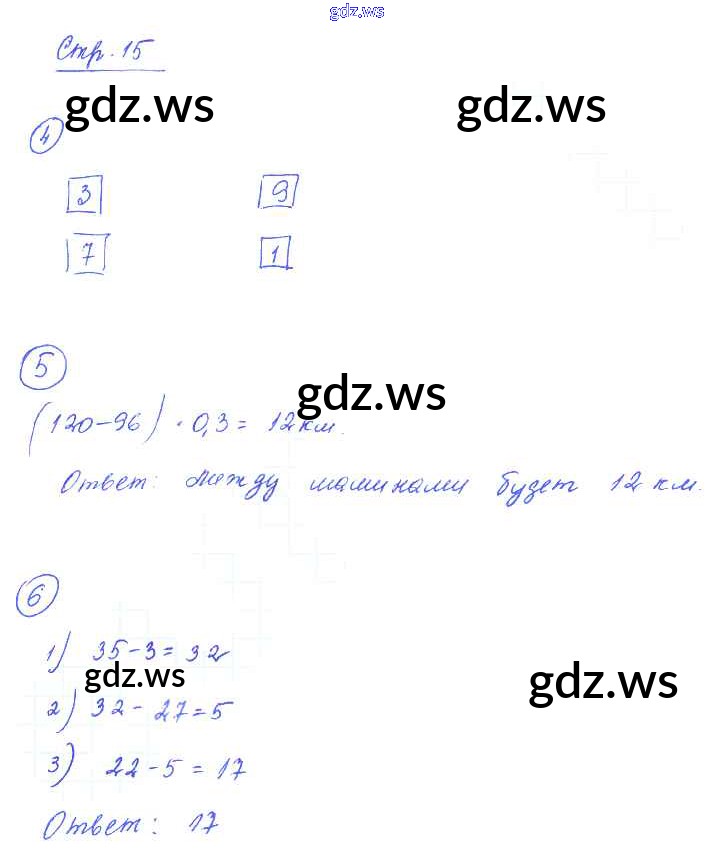 gdz.ws
Стр. 15
gdz.ws gdz.ws
4
3 9
7 1
5
gdz.ws
(120-96) · 0,3 = 12 км.
Ответ: между машинами будет 12 км.
6
1) 35-3 = 32
gdz.ws gdz.ws
2) 32 - 27 = 5
3) 22-5 = 17
Ответ: 17